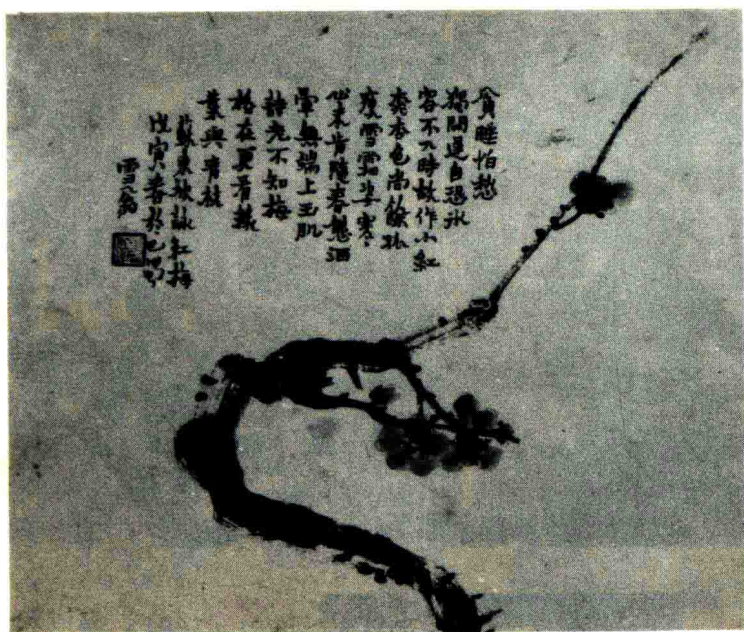 貪睡怕愁
獨開遲自恐氷
容不入時故作小紅
桃杏色尚餘孤
瘦雪霜姿寒
心未肯隨春態酒
暈無端上玉肌
詩老不知梅
格在更看綠
葉與青枝
蘇東坡詠紅梅
戊寅春於巴
雪翁